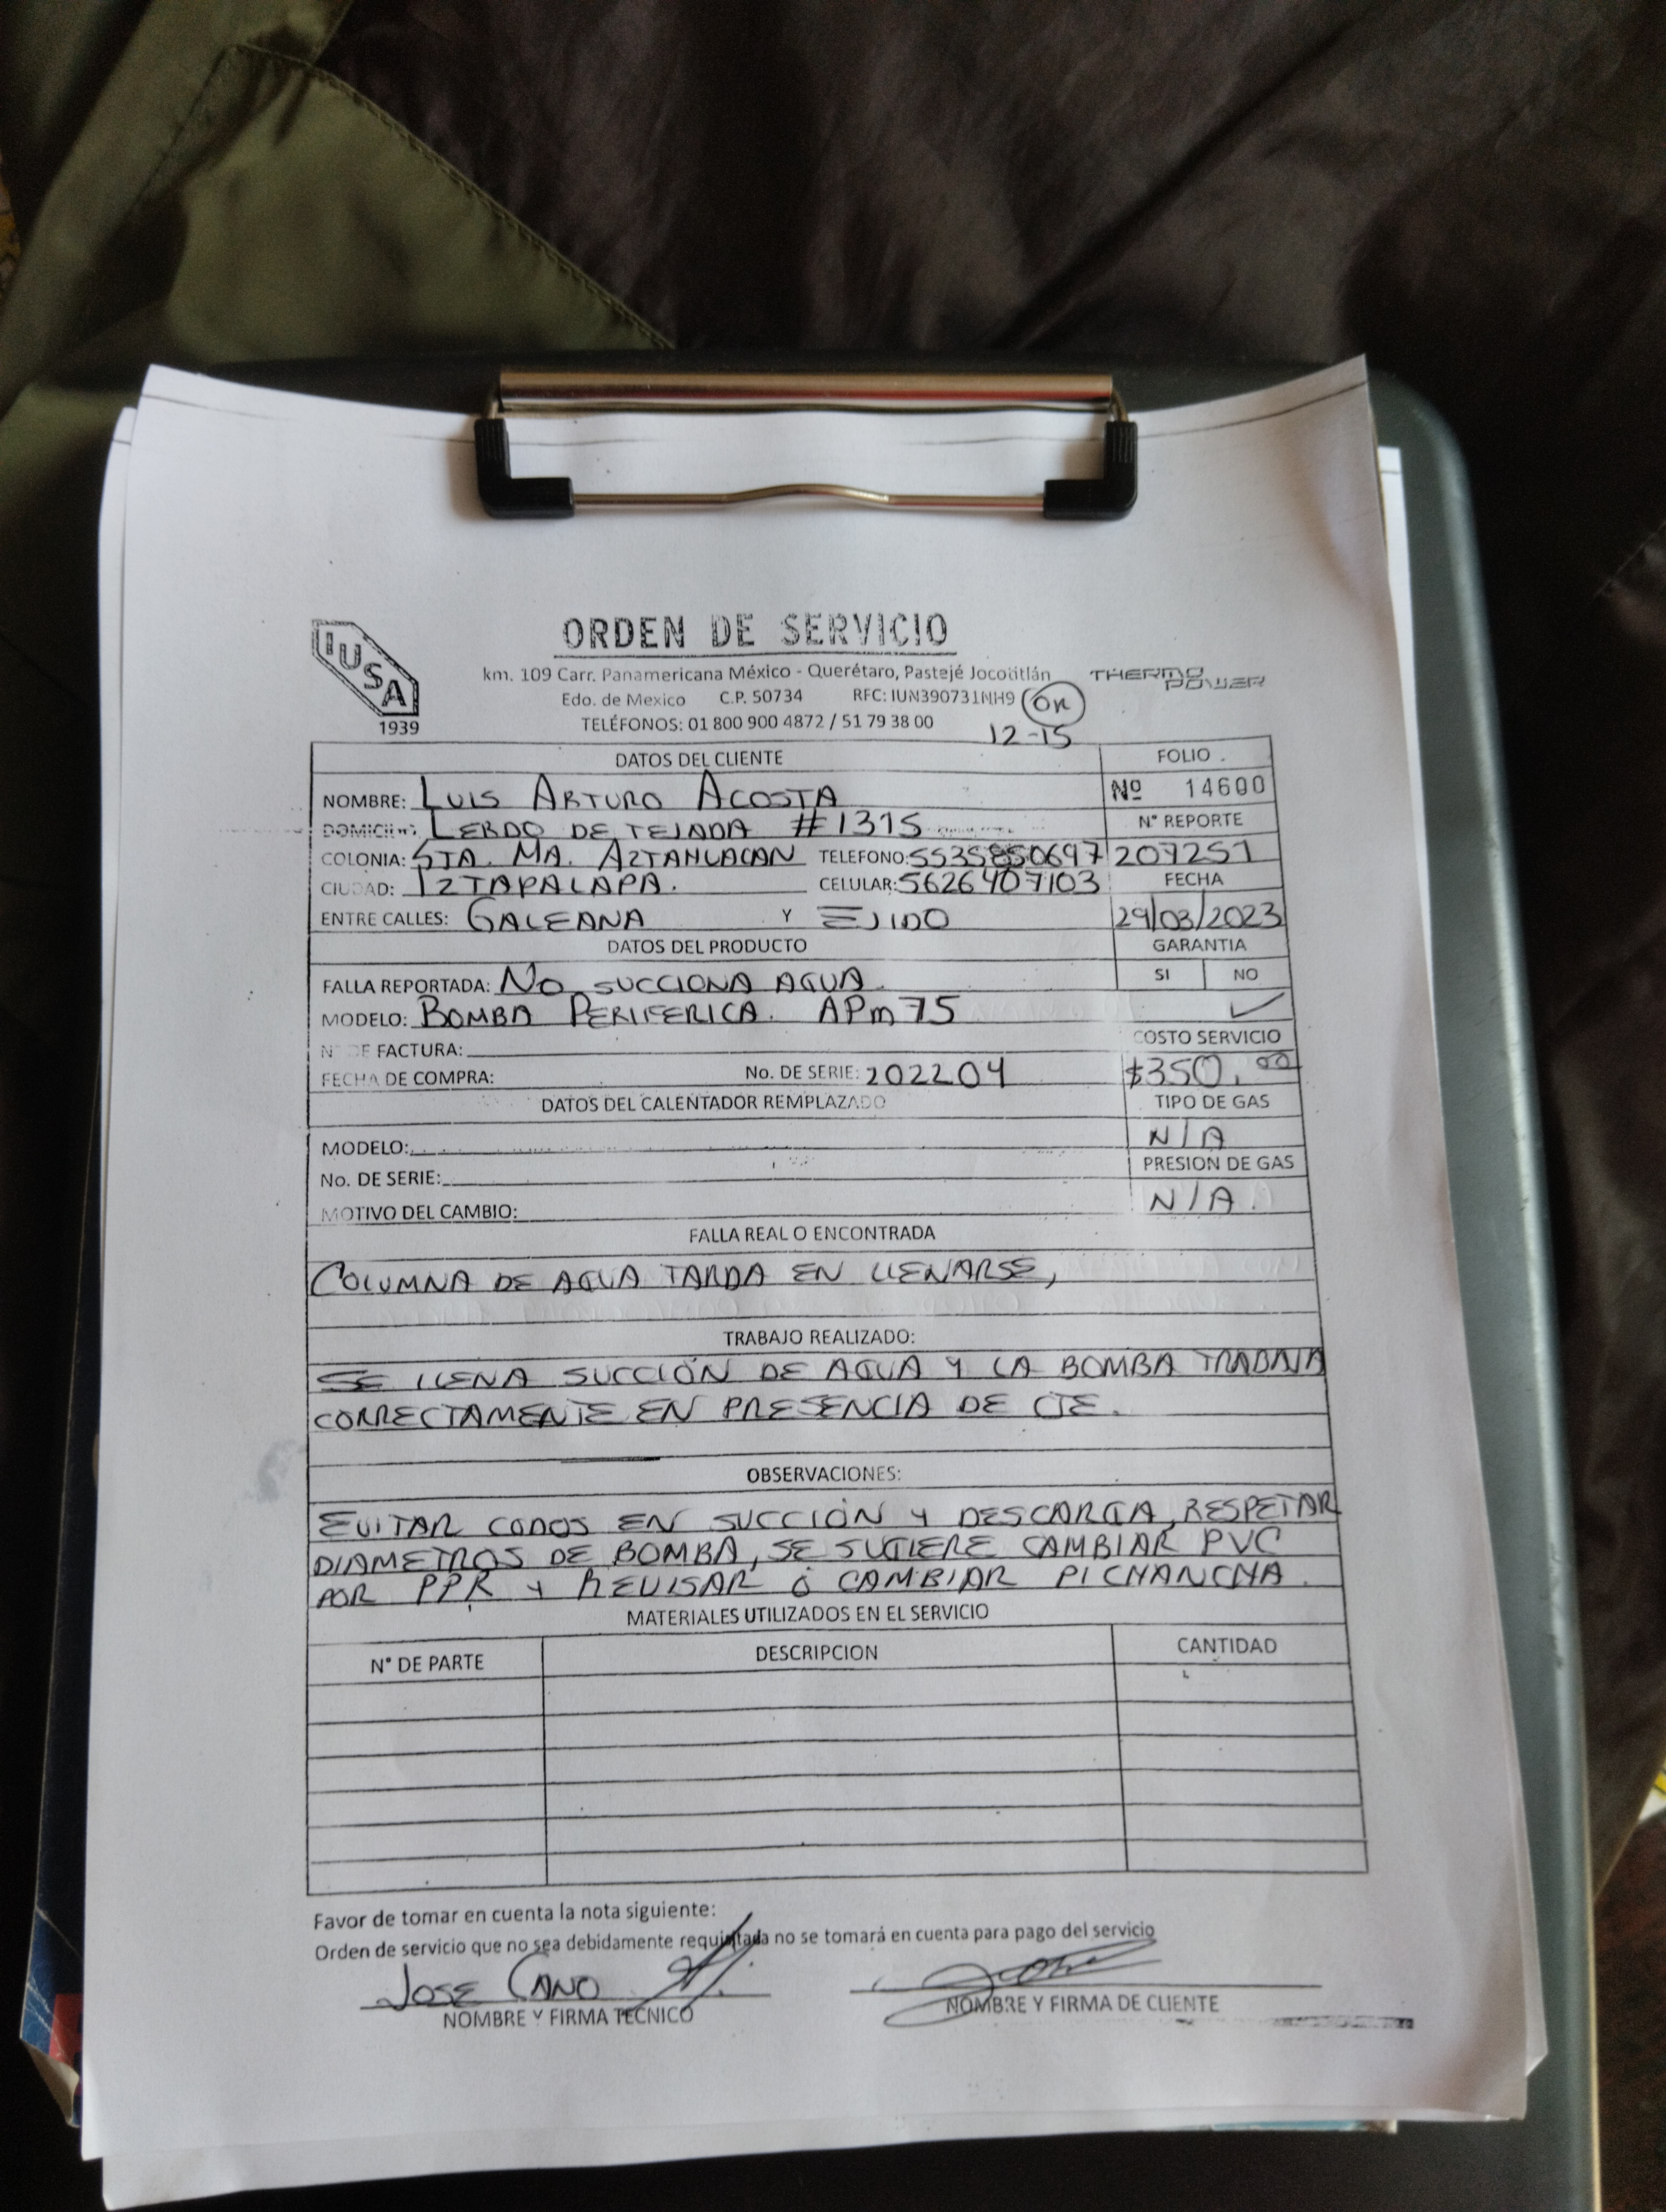 IUSA
1939
ORDEN DE SERVICIO
km. 109 Carr. Panamericana México - Querétaro, Pastejé Jocotitlán
THERMO POWER
Edo. de Mexico C.P. 50734 RFC: IUN390731NH9 OK
TELÉFONOS: 01 800 900 4872 / 51 79 38 00
12-15
DATOS DEL CLIENTE FOLIO
NOMBRE: LUIS ARTURO ACOSTA Nº 14600
DOMICILIO: LERDO DE TEJADA #1315 N° REPORTE
COLONIA: STA. MA. AZTAHUACAN TELEFONO: 5535850697 207251
CIUDAD: IZTAPALAPA. CELULAR: 5626407103 FECHA
ENTRE CALLES: GALEANA Y EJIDO 29/03/2023
DATOS DEL PRODUCTO GARANTIA
FALLA REPORTADA: NO SUCCIONA AGUA. SI NO
MODELO: BOMBA PERIFERICA. APm75 ✓
N° DE FACTURA: COSTO SERVICIO
FECHA DE COMPRA: No. DE SERIE: 202204 $350.00
DATOS DEL CALENTADOR REMPLAZADO TIPO DE GAS
MODELO: N/A
No. DE SERIE: PRESION DE GAS
MOTIVO DEL CAMBIO: N/A.
FALLA REAL O ENCONTRADA
COLUMNA DE AGUA TARDA EN LLENARSE,
TRABAJO REALIZADO:
SE LLENA SUCCIÓN DE AGUA Y LA BOMBA TRABAJA
CORRECTAMENTE EN PRESENCIA DE CTE.
OBSERVACIONES:
EVITAR CODOS EN SUCCIÓN Y DESCARGA, RESPETAR
DIAMETROS DE BOMBA, SE SUGIERE CAMBIAR PVC
POR PPR Y REVISAR Ó CAMBIAR PICHANCHA.
MATERIALES UTILIZADOS EN EL SERVICIO
N° DE PARTE DESCRIPCION CANTIDAD
Favor de tomar en cuenta la nota siguiente:
Orden de servicio que no sea debidamente requisitada no se tomará en cuenta para pago del servicio
JOSE CANO
NOMBRE Y FIRMA TECNICO NOMBRE Y FIRMA DE CLIENTE